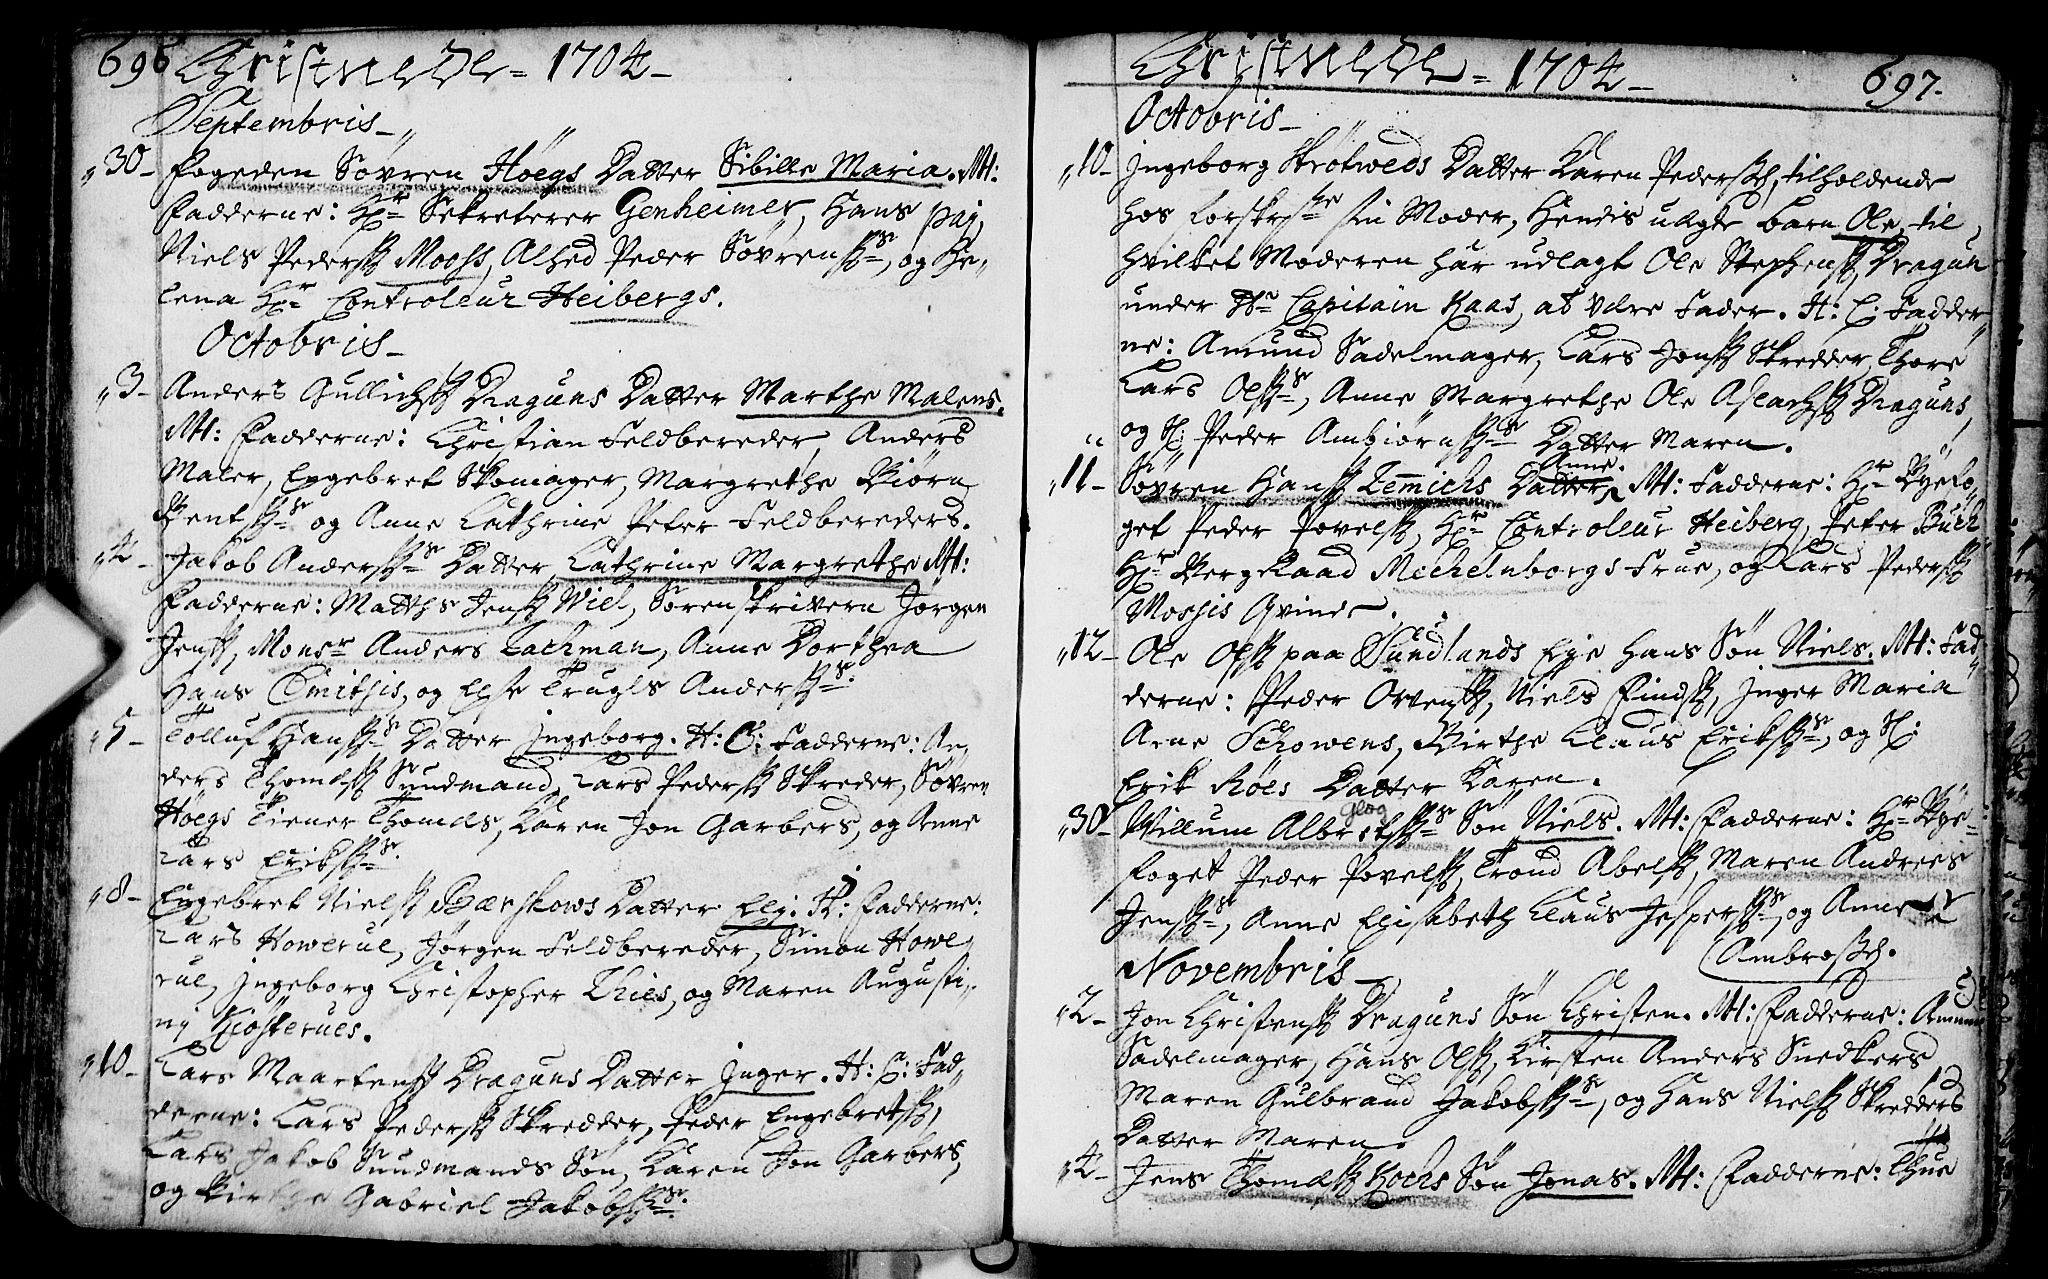 696 Christnede = 1704 –
Septembris –
30 – Fogeden Søvren Høegs Datter Sibille Maria. M:
Fadderne: Hr Sekreterer Genheimer, Hans paj,
Niels Pedersz Mooss, Alhed Peder Søvrensz, og He,,
lena Hr Controleur Heibergs.
Octobris –
3 – Anders Gullichsz Draguns Datter Marthe Malens.
M: Fadderne: Christian Feldbereder, Anders
Maler, Engebret Skomager, Margrethe Biørn
Bentsz og Anne Cathrine Peter Feldbereders.
4 – Jakob Andersz Datter Cathrine Margrethe M:
Fadderne: Matths Jensz Wiel, Søren skrivern Jørgen
Jensz, Monsr Anders Lachman, Anne Dorthea
Hans Smitsis, og Else Trugls Andersz.
5 – Tolluf Hansz Datter Ingeborg. H: C: Fadderne: An,
ders Thomæsz Sundmand, Lars Pedersz Skreder, Søvren
Høegs Tiener Thomas, Karen Jon Garbers, og Anne
Lars Eriksz.
8 – Engebret Nielsz Bærskows Datter Eli. H: Fadderne:
Lars Howerul, Jørgen Feldbereder, Simon Howe,
rul, Ingeborg Christopher Thies, og Maren Augusti,,
nj Kiosterues.
10 – Lars Maartensz Draguns Datter Inger. H: C: Fad,,
derne: Lars Pedersz Skredder, Peder Engebretsz,
Lars Jakob Sundmands Søn, Karen Jon Garbers,
og Birthe Gabriel Jakobsz.
Christnede = 1704 – 697.
Octobris –
10 – Ingeborg Strøtweds Datter Karen Pedersd, tilholdende
hos forskrefne sin Moder, Hendis uægte Barn Ole, til
hvilket Moderen har udlagt Ole Stephensz Dragun
under Hr Capitain Kaas, at være Fader. H: C: Fadder
ne: Amund Sadelmager, Lars Jonsz Skredder, Thore
Lars Olsz, Anne Margrethe Ole Aslachsz Draguns,
og Sl: Peder Ambiørnsz Datter Maren.
11 – Søvren Hansz Lemichs Datter Anne. M: Fadderne: Hr Byefo,,
get Peder Povelsz, Hr Controleur Heiberg, Peter Buch
Hr BergRaad Mechelnborgs Frue, og Lars Pedersz
Mossis Qvinde.
12 – Ole Olsz paa Sundlands Eje Hans Søn Niels. M: Fad,,
derne: Peder Ovensz, Niels Findsz, Inger Maria
Arne Schowens, Birthe Claus Eriksz, og Sl:
Erik Røes Datter Karen.
glog
30 – Willum Albretsz Søn Niels. M: Fadderne: Hr Bye,,
foget Peder Povelsz, Trond Abelsz, Maren Andrees
Jensz, Anne Elisabeth Claus Jespersz, og Anne
Ambrosd.
Novembris –
2 – Jon Christensz Draguns Søn Christen. M: Fadderne: Amund
Sadelmager, Hans Olsz, Kirsten Anders Snedkers
Maren Gulbrand Jakobsz, og Hans Nielsz Skredders
Datter Maren.
4 – Jens Thomæsz Kochs Søn Jonas. M: Fadderne: Thue